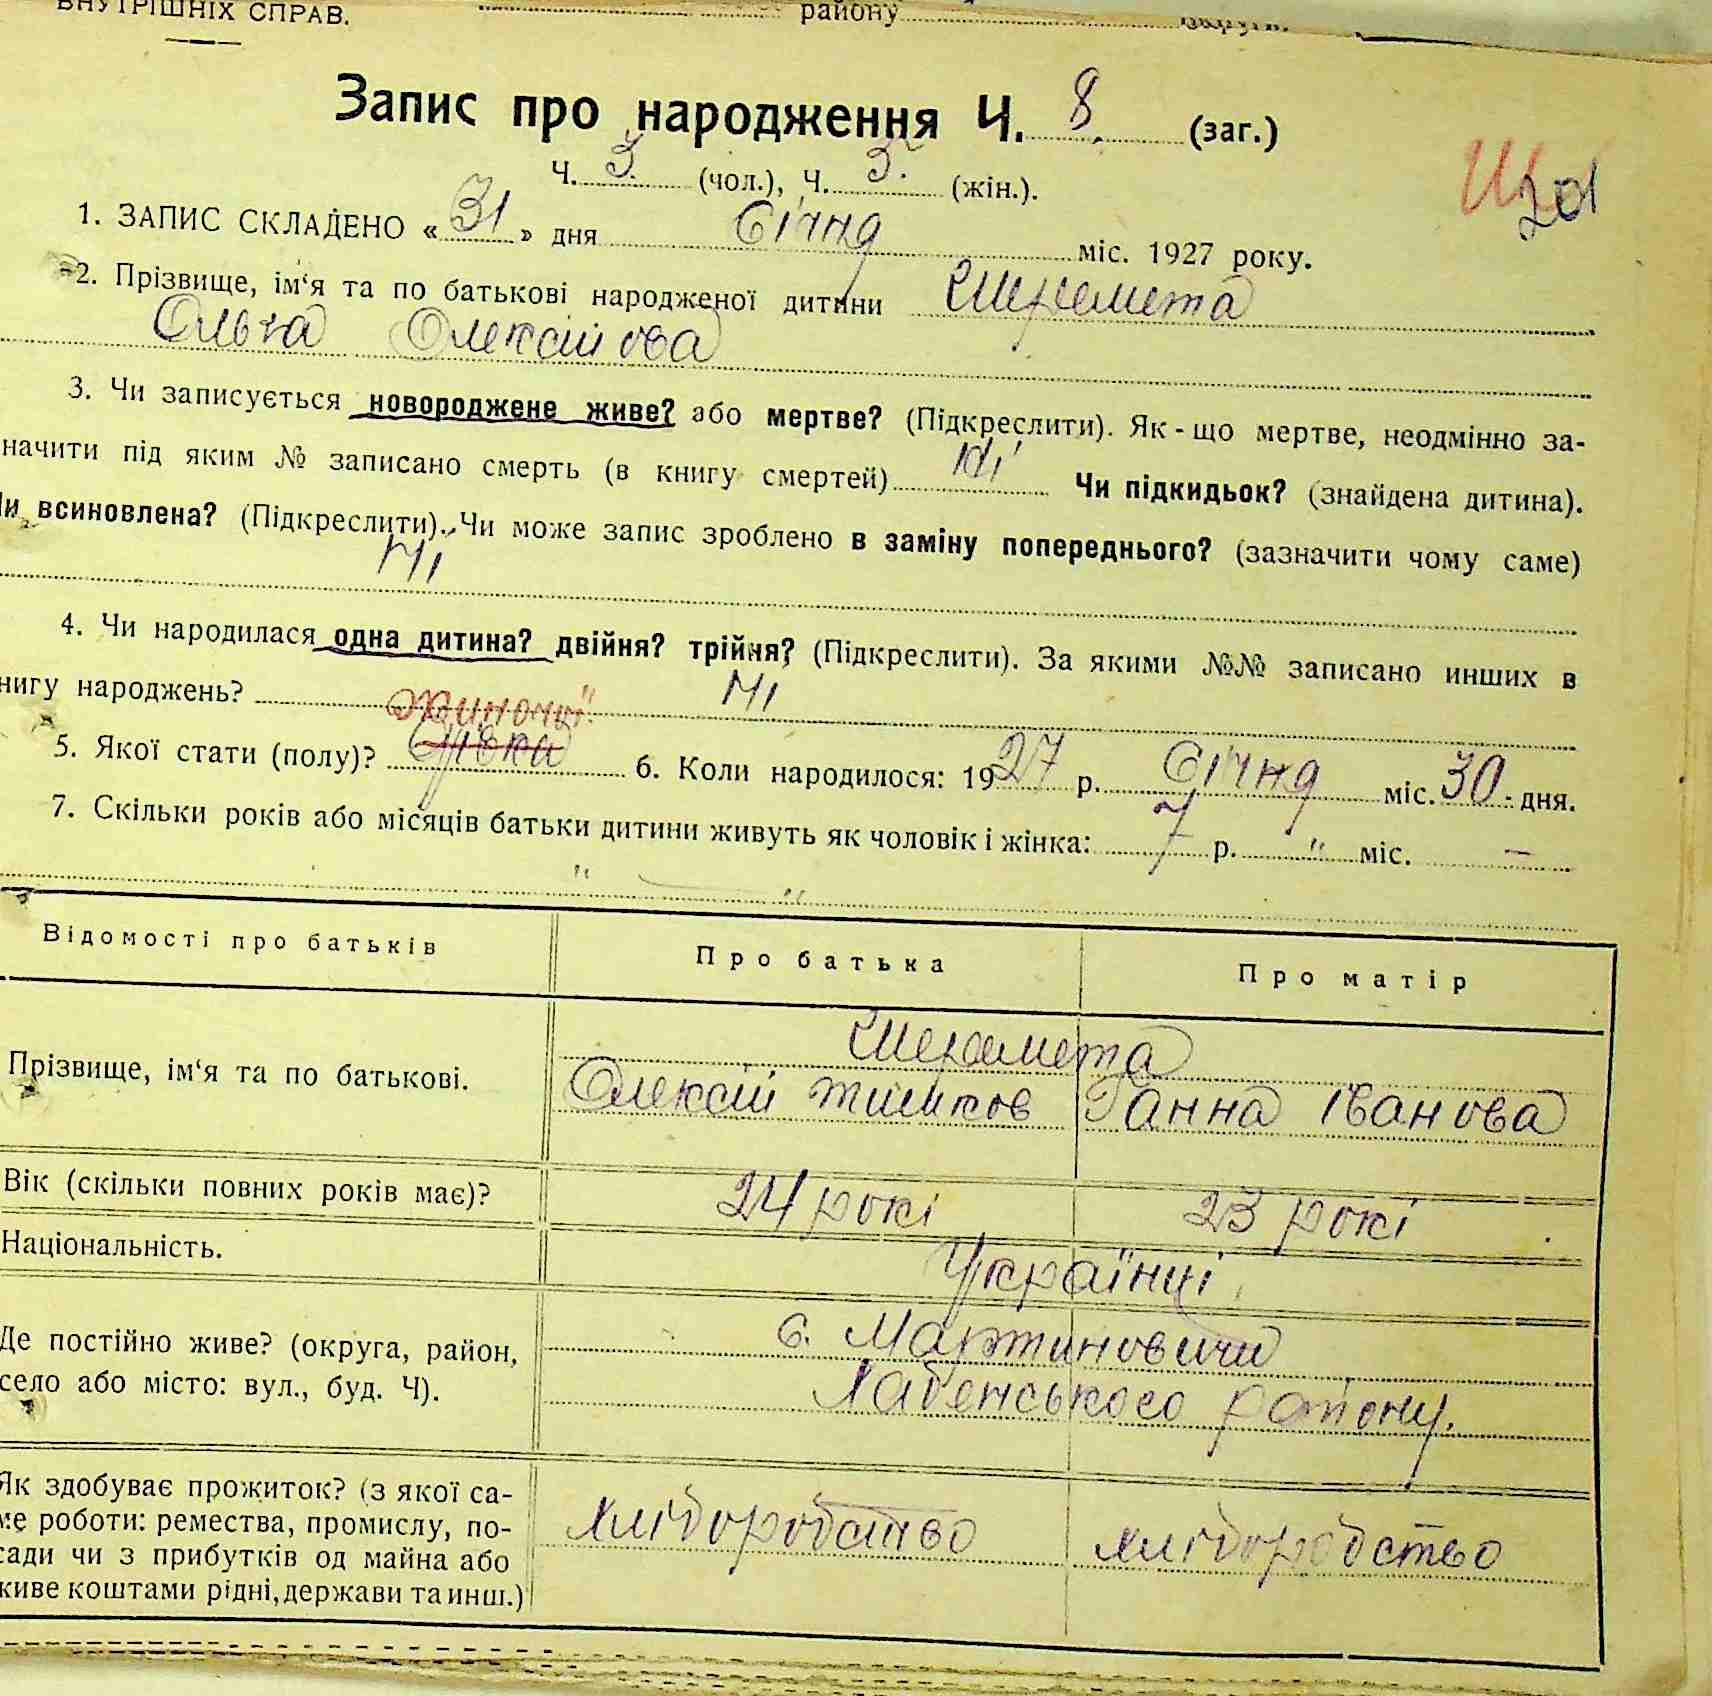 ВНУТРІШНІХ СПРАВ.
району
Запис про народження Ч. 8. (заг.)
Ч. 3. (чол.), Ч. 5. (жін.).
201
1. ЗАПИС СКЛАДЕНО « 31 » дня Січня міс. 1927 року.
2. Прізвище, ім‘я та по батькові народженої дитини Шеремета
Ольга Олексійова
3. Чи записується новороджене живе? або мертве? (Підкреслити). Як-що мертве, неодмінно за-
значити під яким № записано смерть (в книгу смертей) Ні Чи підкидьок? (знайдена дитина).
Чи всиновлена? (Підкреслити). Чи може запис зроблено в заміну попереднього? (зазначити чому саме)
Ні
4. Чи народилася одна дитина? двійня? трійня? (Підкреслити). За якими №№ записано инших в
книгу народжень? Ні
жиночої
5. Якої стати (полу)? Дівка 6. Коли народилося: 1927 р. Січня міс. 30 дня.
7. Скільки років або місяців батьки дитини живуть як чоловік і жінка: 7 р. " міс. —
" "
Відомості про батьків Про батька Про матір
Шеремета
Прізвище, ім‘я та по батькові. Олексій Тимков Ганна Іванова
Вік (скільки повних років має)? 24 рокі 23 рокі
Національність. Українці
Де постійно живе? (округа, район, с. Мартиновичи
село або місто: вул., буд. Ч). Хабенського району.
Як здобуває прожиток? (з якої са-
ме роботи: ремества, промислу, по- хліборобство хліборобство
сади чи з прибутків од майна або
живе коштами рідні, держави та инш.)